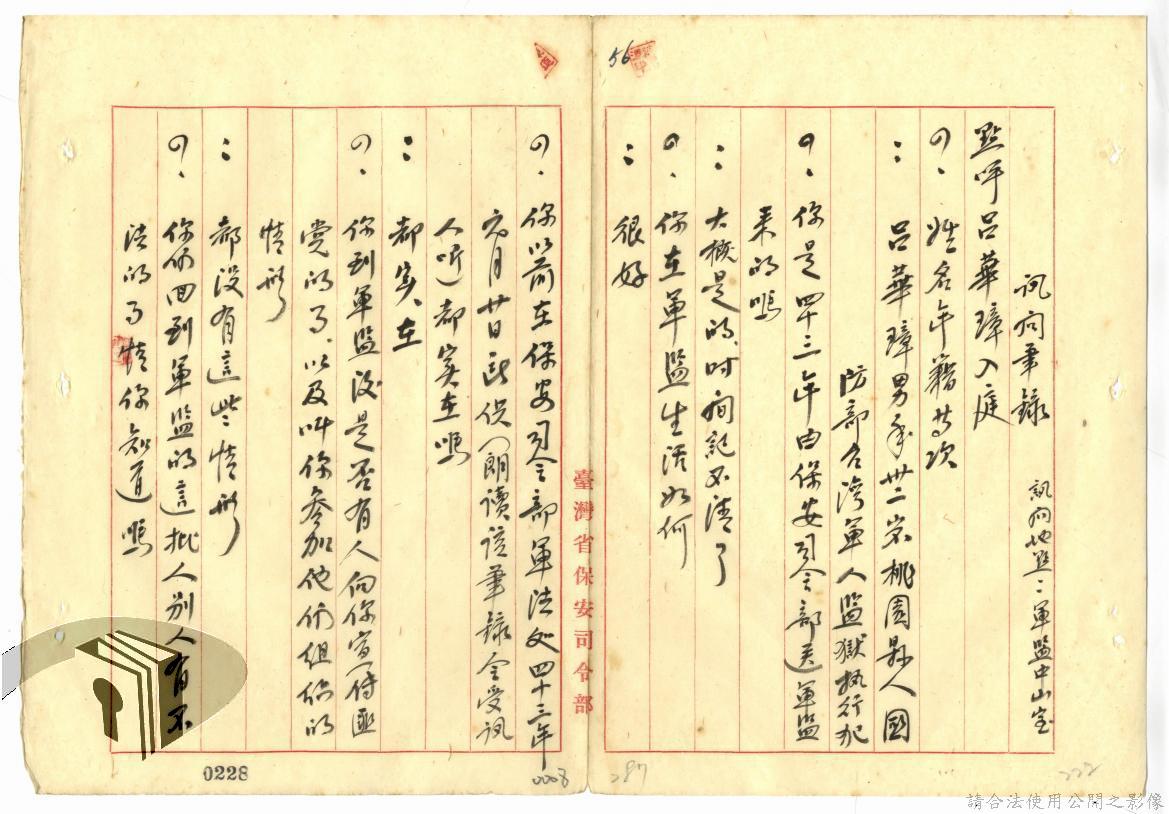 56
訊問筆錄　訊問地點：軍監中山室
點呼呂華璋入庭
問、姓名年籍等次
：呂華璋男年卅二岁桃園县人國
防部台湾軍人監獄执行犯
問、你是四十三年由保安司令部送軍監
来的嗎
：大概是的、时间記不清了
問、你在軍監生活如何
：很好
臺灣省保安司令部
問、你以前在保安司令部軍法处四十三年
六月廿日所供（朗讀該筆錄令受訊
人听）都实在嗎
：都实在
問、你到軍監後是否有人向你宣傳匪
党的事、以及叫你參加他们组织的
情形
：都没有這些情形
問、你们回到軍監的這批人別人有不
法的事情你知道嗎
0228
0008
287
222
請合法使用公開之影像